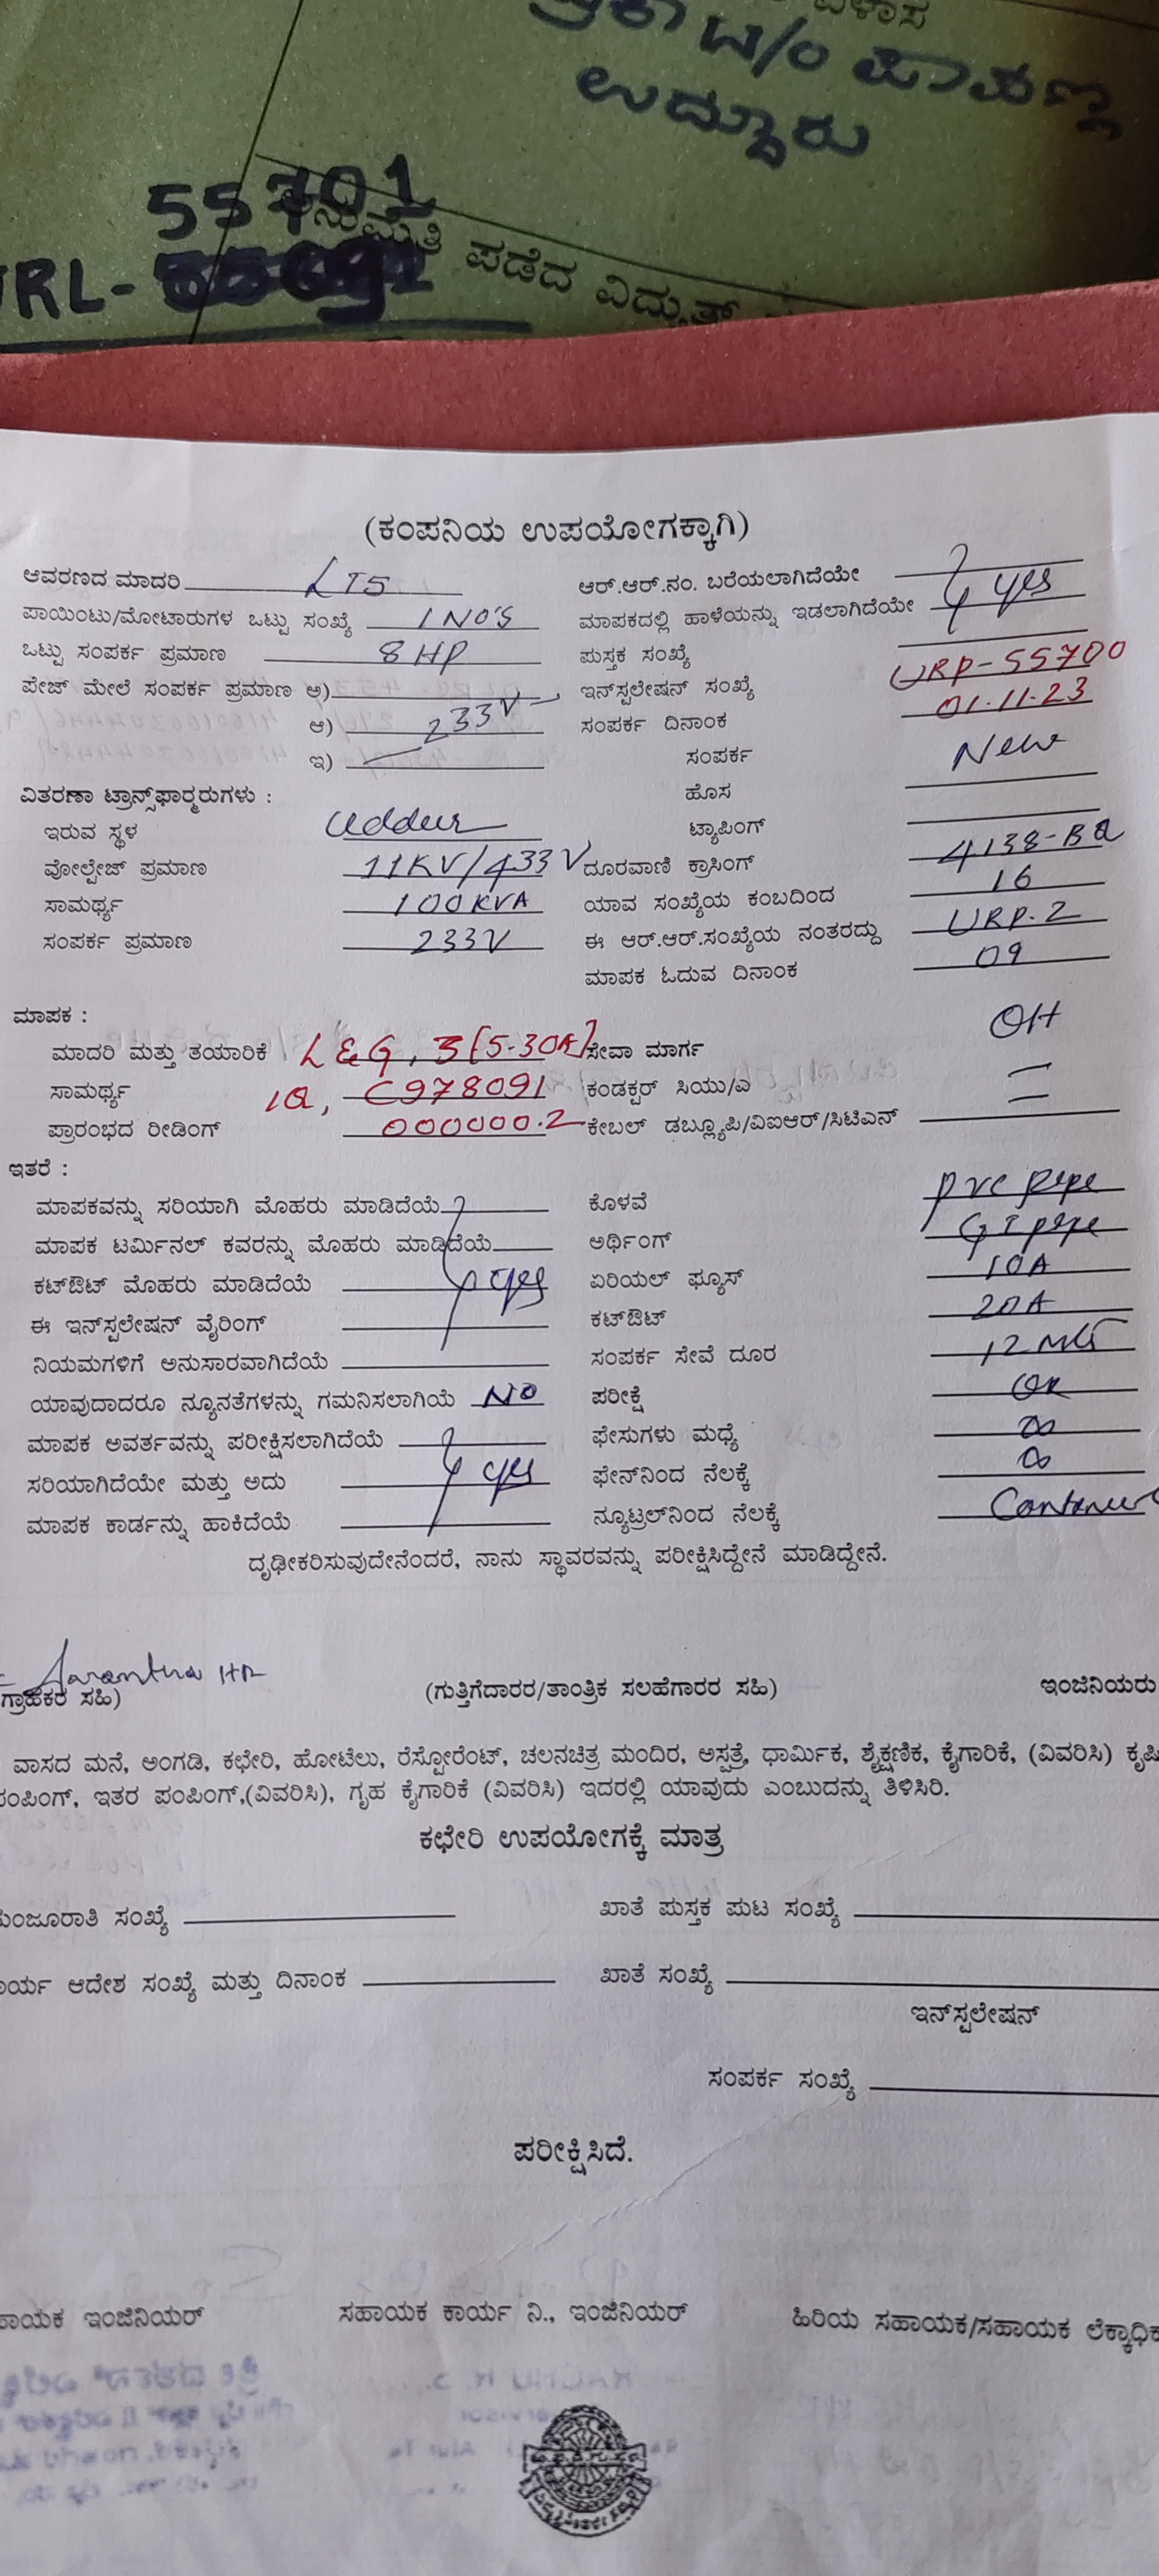 ವಿಳಾಸ
W/o ಪಾಪಣ್ಣ
ಉದ್ದೂರು
55701
ಅನುಮತಿ ಪಡೆದ ವಿದ್ಯುತ್
RL-
(ಕಂಪನಿಯ ಉಪಯೋಗಕ್ಕಾಗಿ)
ಆವರಣದ ಮಾದರಿ LT5 ಆರ್.ಆರ್.ನಂ. ಬರೆಯಲಾಗಿದೆಯೇ
ಪಾಯಿಂಟು/ಮೋಟಾರುಗಳ ಒಟ್ಟು ಸಂಖ್ಯೆ 1 NO'S ಮಾಪಕದಲ್ಲಿ ಹಾಳೆಯನ್ನು ಇಡಲಾಗಿದೆಯೇ yes
ಒಟ್ಟು ಸಂಪರ್ಕ ಪ್ರಮಾಣ 8 HP ಪುಸ್ತಕ ಸಂಖ್ಯೆ
ಪೇಜ್ ಮೇಲೆ ಸಂಪರ್ಕ ಪ್ರಮಾಣ ಅ) ಇನ್‌ಸ್ಟಲೇಷನ್ ಸಂಖ್ಯೆ URP-55700
ಆ) 233V ಸಂಪರ್ಕ ದಿನಾಂಕ 01.11.23
ಇ) ಸಂಪರ್ಕ New
ವಿತರಣಾ ಟ್ರಾನ್ಸ್‌ಫಾರ್ಮರುಗಳು : ಹೊಸ
ಇರುವ ಸ್ಥಳ Uddur ಟ್ಯಾಪಿಂಗ್
ವೋಲ್ಟೇಜ್ ಪ್ರಮಾಣ 11KV/433V ದೂರವಾಣಿ ಕ್ರಾಸಿಂಗ್ 4138-BQ
ಸಾಮರ್ಥ್ಯ 100KVA ಯಾವ ಸಂಖ್ಯೆಯ ಕಂಬದಿಂದ 16
ಸಂಪರ್ಕ ಪ್ರಮಾಣ 233V ಈ ಆರ್.ಆರ್.ಸಂಖ್ಯೆಯ ನಂತರದ್ದು URP-2
ಮಾಪಕ ಓದುವ ದಿನಾಂಕ 09
ಮಾಪಕ :
ಮಾದರಿ ಮತ್ತು ತಯಾರಿಕೆ L&G, 3(5-30A) ಸೇವಾ ಮಾರ್ಗ OH
ಸಾಮರ್ಥ್ಯ C978091 ಕಂಡಕ್ಟರ್ ಸಿಯು/ಎ —
ಪ್ರಾರಂಭದ ರೀಡಿಂಗ್ 000000.2 ಕೇಬಲ್ ಡಬ್ಲ್ಯೂಪಿ/ವಿಐಆರ್/ಸಿಟಿಎನ್ —
ಇತರೆ :
ಮಾಪಕವನ್ನು ಸರಿಯಾಗಿ ಮೊಹರು ಮಾಡಿದೆಯೆ ಕೊಳವೆ pvc pipe
ಮಾಪಕ ಟರ್ಮಿನಲ್ ಕವರನ್ನು ಮೊಹರು ಮಾಡಿದೆಯೆ ಅರ್ಥಿಂಗ್ GI pipe
ಕಟ್‌ಔಟ್ ಮೊಹರು ಮಾಡಿದೆಯೆ yes ಏರಿಯಲ್ ಫ್ಯೂಸ್ 10A
ಈ ಇನ್‌ಸ್ಟಲೇಷನ್ ವೈರಿಂಗ್ ಕಟ್‌ಔಟ್ 20A
ನಿಯಮಗಳಿಗೆ ಅನುಸಾರವಾಗಿದೆಯೆ ಸಂಪರ್ಕ ಸೇವೆ ದೂರ 12
ಯಾವುದಾದರೂ ನ್ಯೂನತೆಗಳನ್ನು ಗಮನಿಸಲಾಗಿಯೆ NO ಪರೀಕ್ಷೆ OK
ಮಾಪಕ ಅವರ್ತವನ್ನು ಪರೀಕ್ಷಿಸಲಾಗಿದೆಯೆ ಫೇಸುಗಳು ಮಧ್ಯೆ ∞
ಸರಿಯಾಗಿದೆಯೇ ಮತ್ತು ಅದು yes ಫೇನ್‌ನಿಂದ ನೆಲಕ್ಕೆ ∞
ಮಾಪಕ ಕಾರ್ಡನ್ನು ಹಾಕಿದೆಯೆ ನ್ಯೂಟ್ರಲ್‌ನಿಂದ ನೆಲಕ್ಕೆ
ದೃಢೀಕರಿಸುವುದೇನೆಂದರೆ, ನಾನು ಸ್ಥಾವರವನ್ನು ಪರೀಕ್ಷಿಸಿದ್ದೇನೆ ಮಾಡಿದ್ದೇನೆ.
ಗ್ರಾಹಕರ ಸಹಿ) (ಗುತ್ತಿಗೆದಾರರ/ತಾಂತ್ರಿಕ ಸಲಹೆಗಾರರ ಸಹಿ) ಇಂಜಿನಿಯರು
ವಾಸದ ಮನೆ, ಅಂಗಡಿ, ಕಛೇರಿ, ಹೋಟೆಲು, ರೆಸ್ಟೋರೆಂಟ್, ಚಲನಚಿತ್ರ ಮಂದಿರ, ಅಸ್ಪತ್ರೆ, ಧಾರ್ಮಿಕ, ಶೈಕ್ಷಣಿಕ, ಕೈಗಾರಿಕೆ, (ವಿವರಿಸಿ) ಕೃಷಿ
ಪಂಪಿಂಗ್, ಇತರ ಪಂಪಿಂಗ್,(ವಿವರಿಸಿ), ಗೃಹ ಕೈಗಾರಿಕೆ (ವಿವರಿಸಿ) ಇದರಲ್ಲಿ ಯಾವುದು ಎಂಬುದನ್ನು ತಿಳಿಸಿರಿ.
ಕಛೇರಿ ಉಪಯೋಗಕ್ಕೆ ಮಾತ್ರ
ಮಂಜೂರಾತಿ ಸಂಖ್ಯೆ ಖಾತೆ ಪುಸ್ತಕ ಪುಟ ಸಂಖ್ಯೆ
ಕಾರ್ಯ ಆದೇಶ ಸಂಖ್ಯೆ ಮತ್ತು ದಿನಾಂಕ ಖಾತೆ ಸಂಖ್ಯೆ
ಇನ್‌ಸ್ಟಲೇಷನ್
ಸಂಪರ್ಕ ಸಂಖ್ಯೆ
ಪರೀಕ್ಷಿಸಿದೆ.
ಸಹಾಯಕ ಇಂಜಿನಿಯರ್ ಸಹಾಯಕ ಕಾರ್ಯ ನಿ., ಇಂಜಿನಿಯರ್ ಹಿರಿಯ ಸಹಾಯಕ/ಸಹಾಯಕ ಲೆಕ್ಕಾಧಿಕ